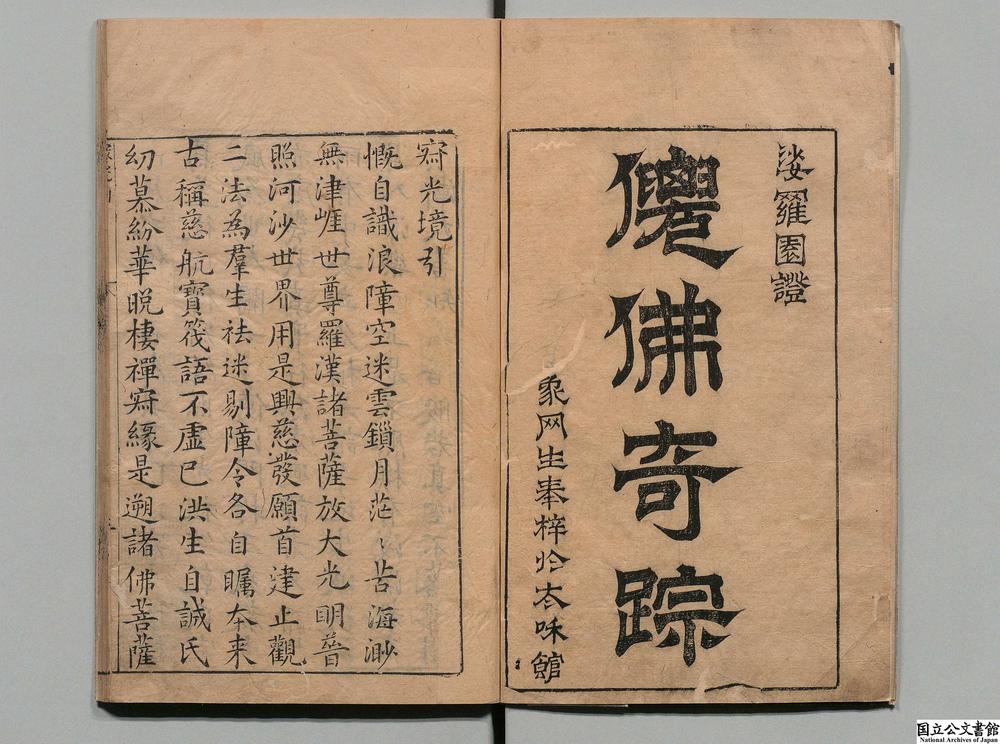 娑羅園證
僊佛奇踪
象网生奉梓於太咊館
寂光境引
慨自識浪障空迷雲鎖月茫〻苦海渺
無津崕世尊羅漢諸菩薩放大光明普
照河沙世界用是興慈發願首建止觀
二法為羣生祛迷剔障令各自矚本来
古稱慈航寶筏語不虛巳洪生自誠氏
幼慕紛華晩棲禪寂緣是遡諸佛菩薩
国立公文書館
National Archives of Japan